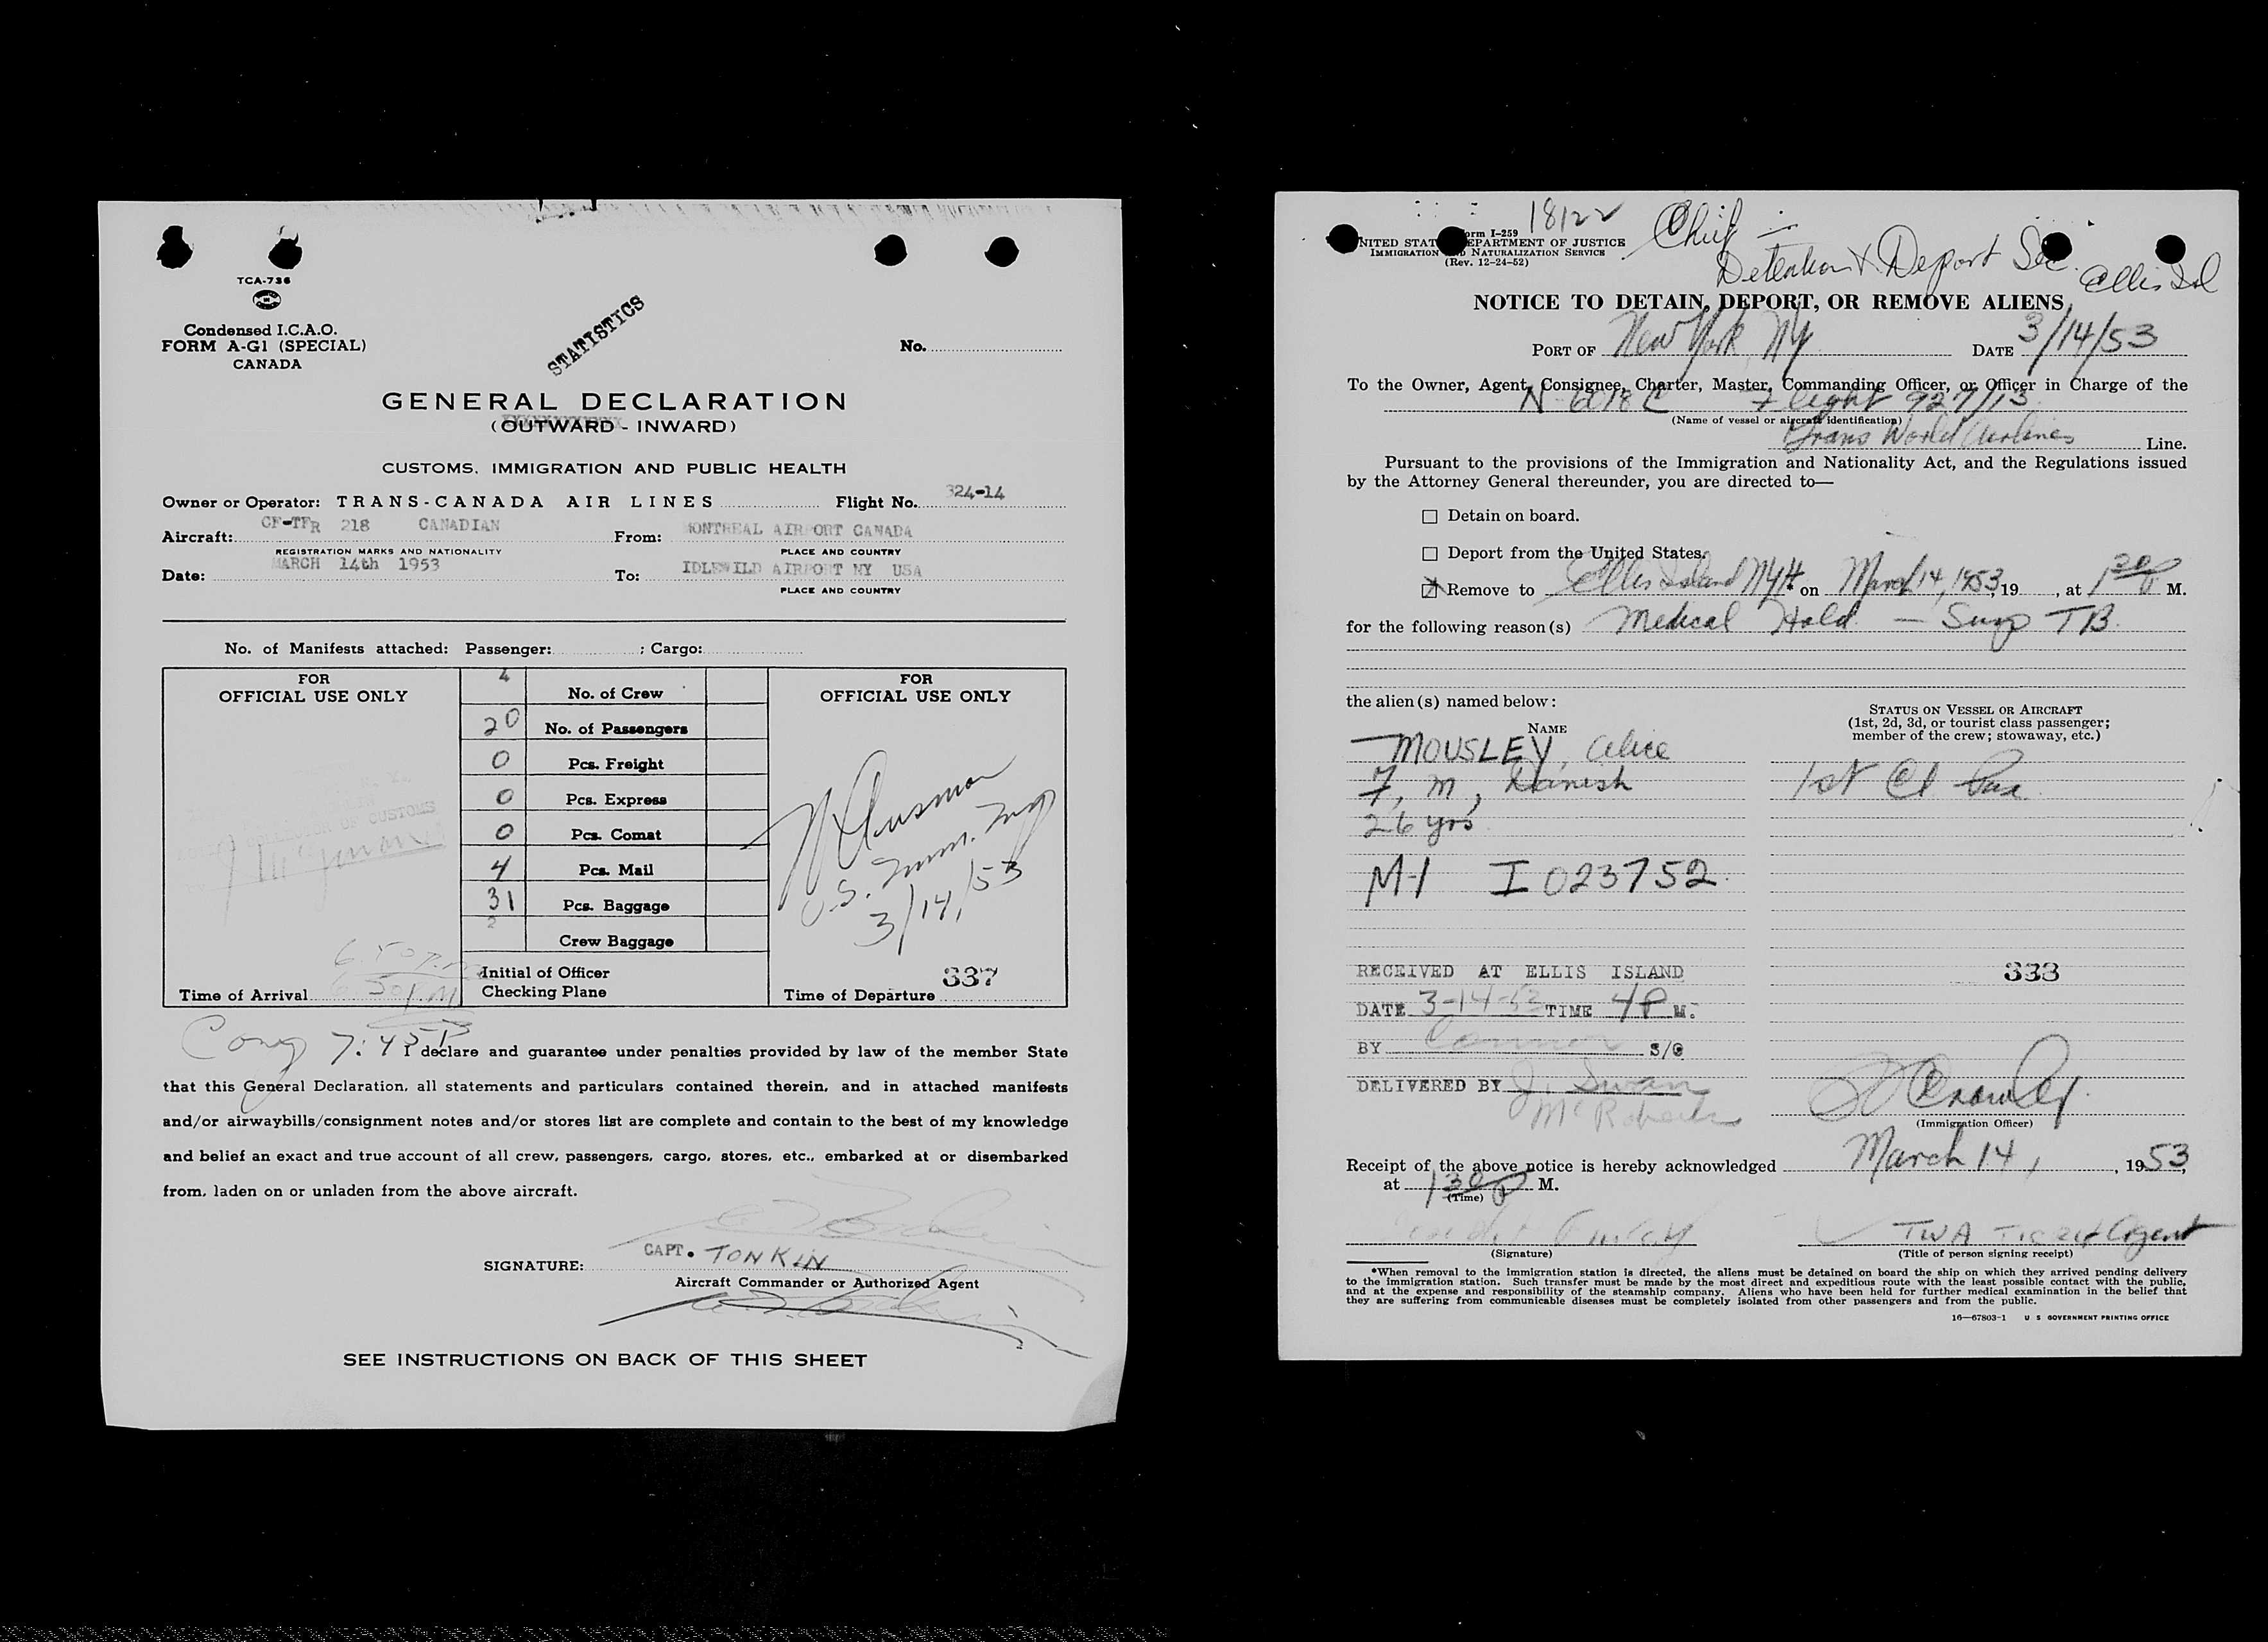 TCA-736
Condensed I.C.A.O.
FORM A-G1 (SPECIAL)
CANADA
STATISTICS
No.
GENERAL DECLARATION
(OUTWARD - INWARD)
CUSTOMS, IMMIGRATION AND PUBLIC HEALTH
Owner or Operator: TRANS-CANADA AIR LINES Flight No. 324-14
Aircraft: CF-TFR 218 CANADIAN From: MONTREAL AIRPORT CANADA
REGISTRATION MARKS AND NATIONALITY PLACE AND COUNTRY
Date: MARCH 14th 1953 To: IDLEWILD AIRPORT NY USA
PLACE AND COUNTRY
No. of Manifests attached: Passenger: ; Cargo:
FOR OFFICIAL USE ONLY
4 No. of Crew
20 No. of Passengers
0 Pcs. Freight
0 Pcs. Express
0 Pcs. Comat
4 Pcs. Mail
31 Pcs. Baggage
2 Crew Baggage
Initial of Officer
Checking Plane
COLLECTOR OF CUSTOMS
Time of Arrival 6.50 P.M
FOR OFFICIAL USE ONLY
U.S. Imm. Insp
3/14/53
337
Time of Departure
7:45P
I declare and guarantee under penalties provided by law of the member State
that this General Declaration, all statements and particulars contained therein, and in attached manifests
and/or airwaybills/consignment notes and/or stores list are complete and contain to the best of my knowledge
and belief an exact and true account of all crew, passengers, cargo, stores, etc., embarked at or disembarked
from, laden on or unladen from the above aircraft.
SIGNATURE: CAPT. TONKIN
Aircraft Commander or Authorized Agent
SEE INSTRUCTIONS ON BACK OF THIS SHEET
18122
Chief -
Detention & Deport Sec. Ellis Isl
Form I-259
UNITED STATES DEPARTMENT OF JUSTICE
IMMIGRATION AND NATURALIZATION SERVICE
(Rev. 12-24-52)
NOTICE TO DETAIN, DEPORT, OR REMOVE ALIENS
PORT OF New York, NY DATE 3/14/53
To the Owner, Agent, Consignee, Charter, Master, Commanding Officer, or Officer in Charge of the
N 6018 C Flight 927/13
(Name of vessel or aircraft identification)
Trans World Airlines Line.
Pursuant to the provisions of the Immigration and Nationality Act, and the Regulations issued
by the Attorney General thereunder, you are directed to—
☐ Detain on board.
☐ Deport from the United States.
☒ Remove to Ellis Island NYH * on March 14, 1953, 19 , at 1 30 P M.
for the following reason(s) Medical Hold - Susp TB
the alien(s) named below:
NAME
STATUS ON VESSEL OR AIRCRAFT
(1st, 2d, 3d, or tourist class passenger;
member of the crew; stowaway, etc.)
MOUSLEY, Alice
F, M, Danish 1st Cl Pax
26 yrs
M-1 I 023752
RECEIVED AT ELLIS ISLAND
333
DATE 3-14-53 TIME 4 P M.
BY Connor S/O
DELIVERED BY J. Swan
McRoberts
(Immigration Officer)
Receipt of the above notice is hereby acknowledged March 14, , 1953,
at 1 30 P M.
(Time)
TWA Ticket Agent
(Signature) (Title of person signing receipt)
*When removal to the immigration station is directed, the aliens must be detained on board the ship on which they arrived pending delivery
to the immigration station. Such transfer must be made by the most direct and expeditious route with the least possible contact with the public,
and at the expense and responsibility of the steamship company. Aliens who have been held for further medical examination in the belief that
they are suffering from communicable diseases must be completely isolated from other passengers and from the public.
16—67803-1 U S GOVERNMENT PRINTING OFFICE